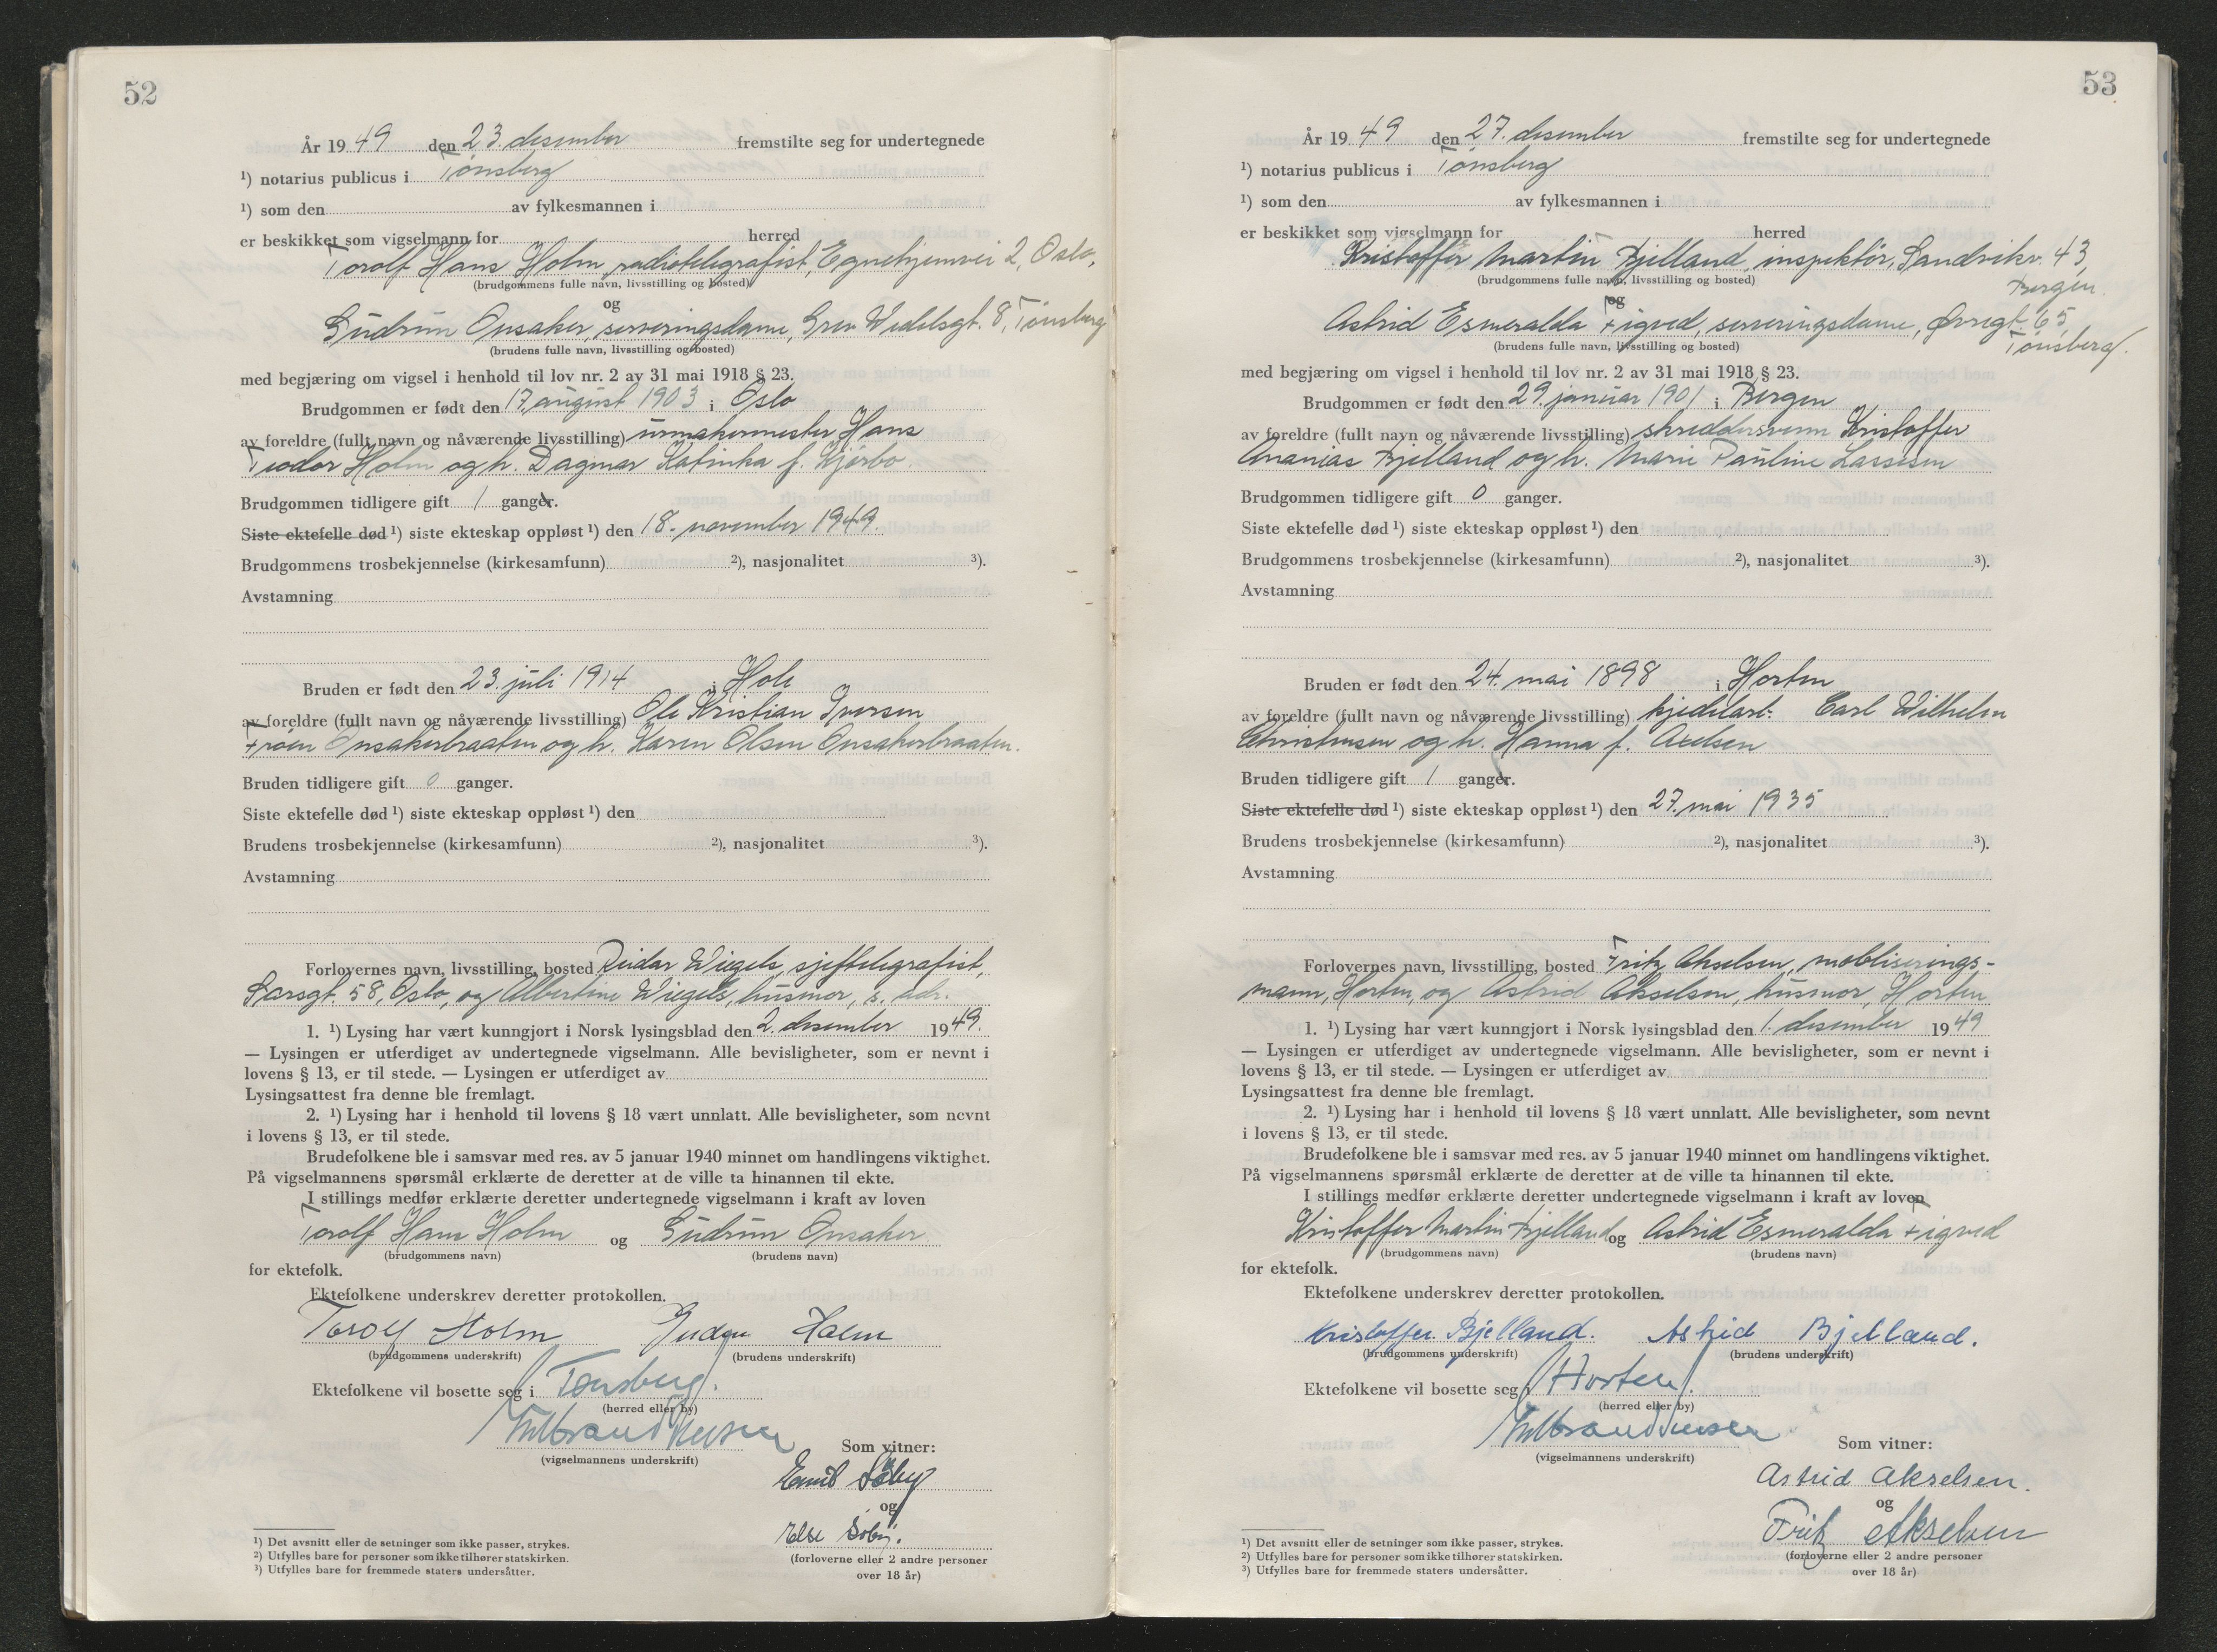 52
År 1949 den 23. desember fremstilte seg for undertegnede
¹) notarius publicus i Tönsberg
¹) som den av fylkesmannen i
er beskikket som vigselmann for herred
Torolf Hans Holm, radiotelegrafist, Egnehjemvei 2, Oslo,
(brudgommens fulle navn, livsstilling og bosted)
og
Gudrun Onsaker, serveringsdame, Grev Wedelsgt. 8, Tönsberg
(brudens fulle navn, livsstilling og bosted)
med begjæring om vigsel i henhold til lov nr. 2 av 31 mai 1918 § 23.
Brudgommen er født den 17. august 1903 i Oslo
av foreldre (fullt navn og nåværende livsstilling) urmakermester Hans
Teodor Holm og h. Dagmar Katinka f. Kjörbo
Brudgommen tidligere gift 1 ganger.
Siste ektefelle død ¹) siste ekteskap oppløst ¹) den 18. november 1949.
Brudgommens trosbekjennelse (kirkesamfunn) ²), nasjonalitet ³).
Avstamning
Bruden er født den 23. juli 1914 i Hole
av foreldre (fullt navn og nåværende livsstilling) Ole Kristian Iversen
Fröen Onsakerbraaten og h. Karen Olsen Onsakerbraaten.
Bruden tidligere gift 0 ganger.
Siste ektefelle død ¹) siste ekteskap oppløst ¹) den
Brudens trosbekjennelse (kirkesamfunn) ²), nasjonalitet ³).
Avstamning
Forlovernes navn, livsstilling, bosted Reidar Wiegels, sjeftelegrafist,
Sarsgt. 58, Oslo, og Albertine Wiegels, husmor, s. adr.
1. ¹) Lysing har vært kunngjort i Norsk lysingsblad den 2. desember 1949.
— Lysingen er utferdiget av undertegnede vigselmann. Alle bevisligheter, som er nevnt i
lovens § 13, er til stede. — Lysingen er utferdiget av
Lysingsattest fra denne ble fremlagt.
2. ¹) Lysing har i henhold til lovens § 18 vært unnlatt. Alle bevisligheter, som nevnt
i lovens § 13, er til stede.
Brudefolkene ble i samsvar med res. av 5 januar 1940 minnet om handlingens viktighet.
På vigselmannens spørsmål erklærte de deretter at de ville ta hinannen til ekte.
I stillings medfør erklærte deretter undertegnede vigselmann i kraft av loven
Torolf Hans Holm og Gudrun Onsaker
(brudgommens navn) (brudens navn)
for ektefolk.
Ektefolkene underskrev deretter protokollen.
Torolf Holm Gudrun Holm
(brudgommens underskrift) (brudens underskrift)
Ektefolkene vil bosette seg i Tønsberg.
(herred eller by)
(vigselmannens underskrift)
Som vitner:
Emil Søby
og
Else Søby.
(forloverne eller 2 andre personer
over 18 år)
¹) Det avsnitt eller de setninger som ikke passer, strykes.
²) Utfylles bare for personer som ikke tilhører statskirken.
³) Utfylles bare for fremmede staters undersåtter.
53
År 1949 den 27. desember fremstilte seg for undertegnede
¹) notarius publicus i Tönsberg
¹) som den av fylkesmannen i
er beskikket som vigselmann for herred
Kristoffer Martin Bjelland, inspektör, Sandvikv. 43,
Bergen.
(brudgommens fulle navn, livsstilling og bosted)
og
Astrid Esmeralda Figved, serveringsdame, Øvregt. 65,
Tönsberg.
(brudens fulle navn, livsstilling og bosted)
med begjæring om vigsel i henhold til lov nr. 2 av 31 mai 1918 § 23.
Brudgommen er født den 29. januar 1901 i Bergen
av foreldre (fullt navn og nåværende livsstilling) skreddersvenn Kristoffer
Ananias Bjelland og h. Marie Pauline Lassesen
Brudgommen tidligere gift 0 ganger.
Siste ektefelle død ¹) siste ekteskap oppløst ¹) den
Brudgommens trosbekjennelse (kirkesamfunn) ²), nasjonalitet ³).
Avstamning
Bruden er født den 24. mai 1898 i Horten
av foreldre (fullt navn og nåværende livsstilling) kjedelarb. Carl Wilhelm
Christensen og h. Hanna f. Axelsen
Bruden tidligere gift 1 ganger.
Siste ektefelle død ¹) siste ekteskap oppløst ¹) den 27. mai 1935
Brudens trosbekjennelse (kirkesamfunn) ²), nasjonalitet ³).
Avstamning
Forlovernes navn, livsstilling, bosted Fritz Akselsen, mobliserings-
mann, Horten, og Astrid Akselsen, husmor, Horten
1. ¹) Lysing har vært kunngjort i Norsk lysingsblad den 1. desember 1949
— Lysingen er utferdiget av undertegnede vigselmann. Alle bevisligheter, som er nevnt i
lovens § 13, er til stede. — Lysingen er utferdiget av
Lysingsattest fra denne ble fremlagt.
2. ¹) Lysing har i henhold til lovens § 18 vært unnlatt. Alle bevisligheter, som nevnt
i lovens § 13, er til stede.
Brudefolkene ble i samsvar med res. av 5 januar 1940 minnet om handlingens viktighet.
På vigselmannens spørsmål erklærte de deretter at de ville ta hinannen til ekte.
I stillings medfør erklærte deretter undertegnede vigselmann i kraft av loven
Kristoffer Martin Bjelland og Astrid Esmeralda Figved
(brudgommens navn) (brudens navn)
for ektefolk.
Ektefolkene underskrev deretter protokollen.
Kristoffer Bjelland. Astrid Bjelland.
(brudgommens underskrift) (brudens underskrift)
Ektefolkene vil bosette seg i Horten.
(herred eller by)
(vigselmannens underskrift)
Som vitner:
Astrid Akselsen.
og
Fritz Akselsen
(forloverne eller 2 andre personer
over 18 år)
¹) Det avsnitt eller de setninger som ikke passer, strykes.
²) Utfylles bare for personer som ikke tilhører statskirken.
³) Utfylles bare for fremmede staters undersåtter.